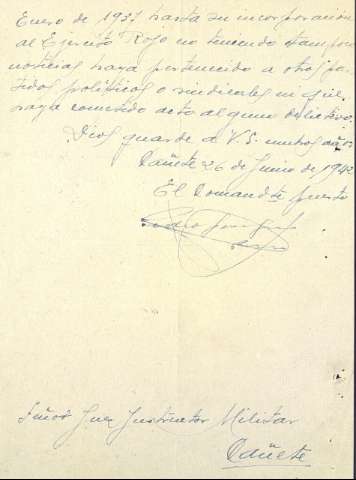 Enero de 1937 hasta su incorporación
al Ejercito Rojo no teniendo tampoco
noticias haya pertenecido a otros par-
tidos politicos o sindicales ni que
haya cometido acto alguno delictivo.
Dios guarde a V.S. muchos años
Cañete 26 de Junio de 1942
El Comandte puesto
Señor Juez Instructor Militar
Cañete